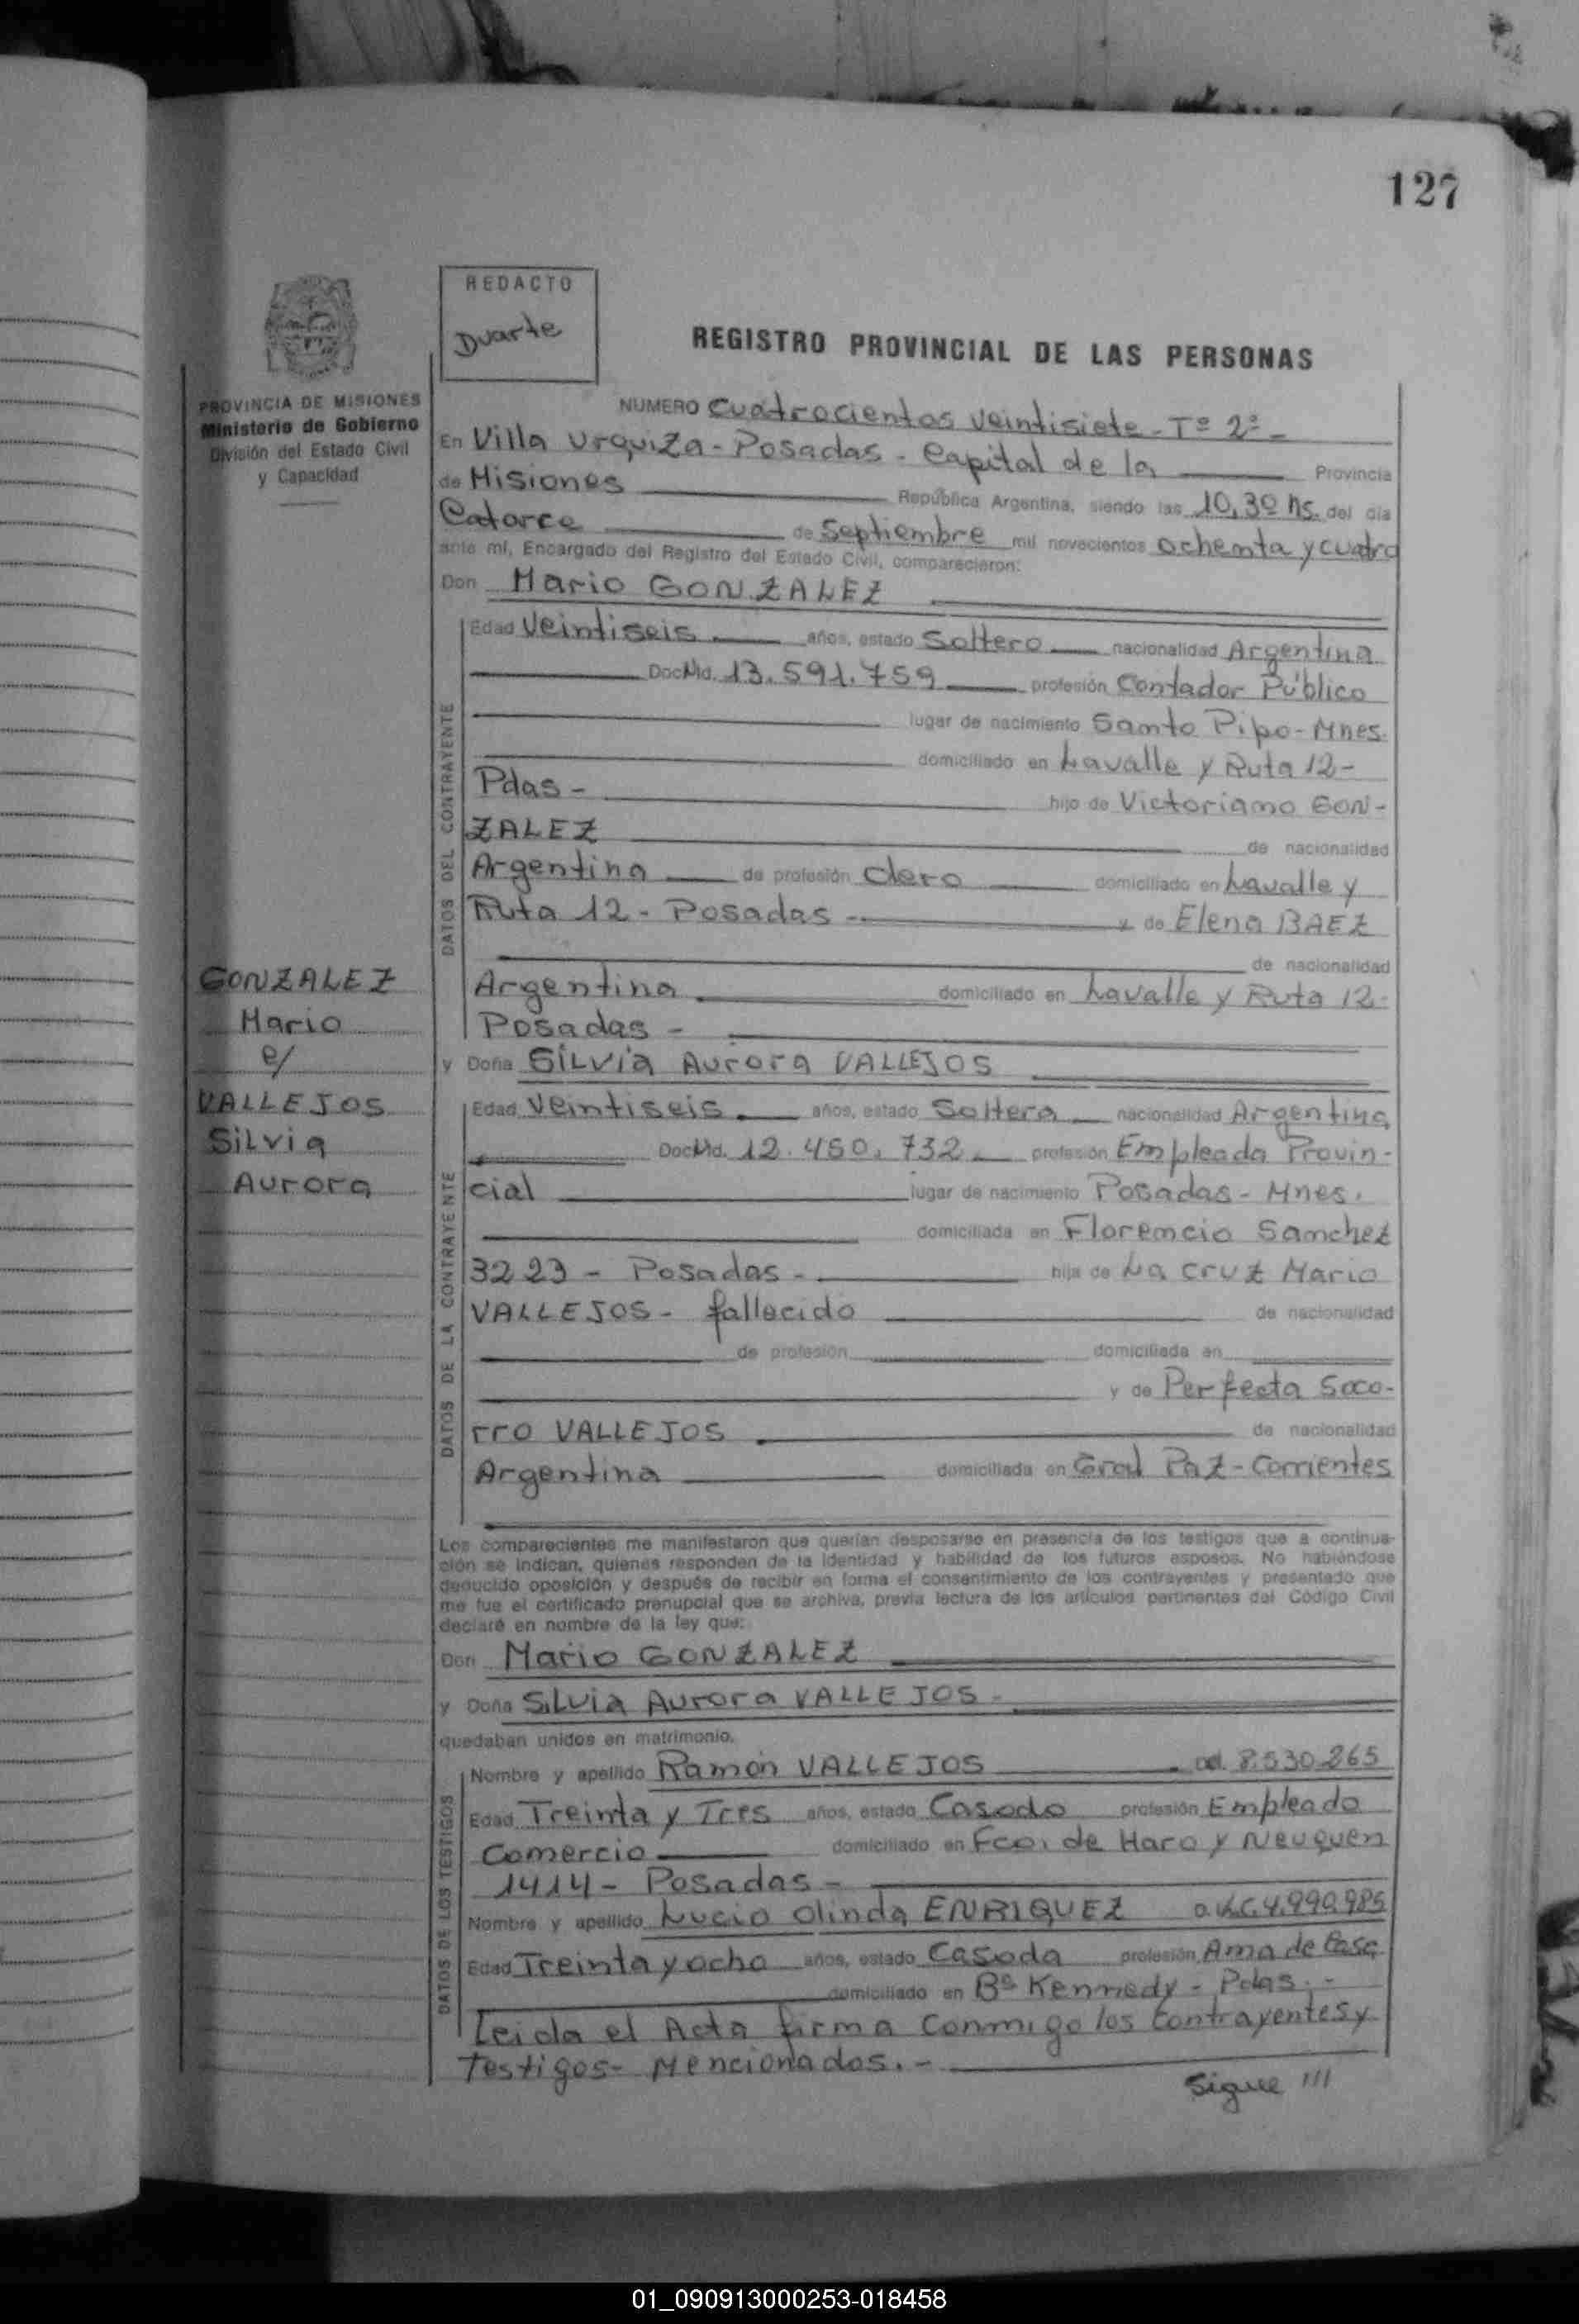 127
REDACTO
Duarte
REGISTRO PROVINCIAL DE LAS PERSONAS
PROVINCIA DE MISIONES
Ministerio de Gobierno
División del Estado Civil
y Capacidad
NUMERO Cuatrocientos veintisiete - Tº 2º -
En Villa Urquiza - Posadas - Capital de la Provincia
de Misiones República Argentina, siendo las 10,30 hs. del día
Catorce de Septiembre mil novecientos ochenta y cuatro
ante mí, Encargado del Registro del Estado Civil, comparecieron:
Don Mario GONZALEZ
DATOS DEL CONTRAYENTE
Edad Veintiseis años, estado Soltero nacionalidad Argentina
Doc. Nd. 13.591.759 profesión Contador Público
lugar de nacimiento Santo Pipo - Mnes.
domiciliado en Lavalle y Ruta 12 -
Pdas - hijo de Victoriano GON-
ZALEZ de nacionalidad
Argentina de profesión Clero domiciliado en Lavalle y
Ruta 12 - Posadas - y de Elena BAEZ
de nacionalidad
Argentina domiciliado en Lavalle y Ruta 12 -
Posadas -
GONZALEZ
Mario
c/
VALLEJOS
Silvia
Aurora
y Doña Silvia Aurora VALLEJOS
DATOS DE LA CONTRAYENTE
Edad Veintiseis años, estado Soltera nacionalidad Argentina
Doc. Nd. 12.450.732 profesión Empleada Provin-
cial lugar de nacimiento Posadas - Mnes.
domiciliada en Florencio Sanchez
3223 - Posadas - hija de La Cruz Mario
VALLEJOS - fallecido de nacionalidad
de profesión domiciliada en
y de Perfecta Soco-
rro VALLEJOS de nacionalidad
Argentina domiciliada en Gral Paz - Corrientes
Los comparecientes me manifestaron que querían desposarse en presencia de los testigos que a continua-
ción se indican, quienes responden de la identidad y habilidad de los futuros esposos. No habiéndose
deducido oposición y después de recibir en forma el consentimiento de los contrayentes y presentado que
me fue el certificado prenupcial que se archiva, previa lectura de los artículos pertinentes del Código Civil
declaré en nombre de la ley que:
Don Mario GONZALEZ
y Doña Silvia Aurora VALLEJOS -
quedaban unidos en matrimonio.
DATOS DE LOS TESTIGOS
Nombre y apellido Ramón VALLEJOS 8.530.265
Edad Treinta y Tres años, estado Casado profesión Empleado
Comercio domiciliado en Fco. de Haro y Neuquen
1414 - Posadas -
Nombre y apellido Lucio Olinda ENRIQUEZ L.C. 4.990.985
Edad Treinta y ocho años, estado Casada profesión Ama de Casa
domiciliado en Bº Kennedy - Pdas. -
Leida el Acta firma conmigo los Contrayentes y
Testigos - Mencionados. -
Sigue ///
01_090913000253-018458